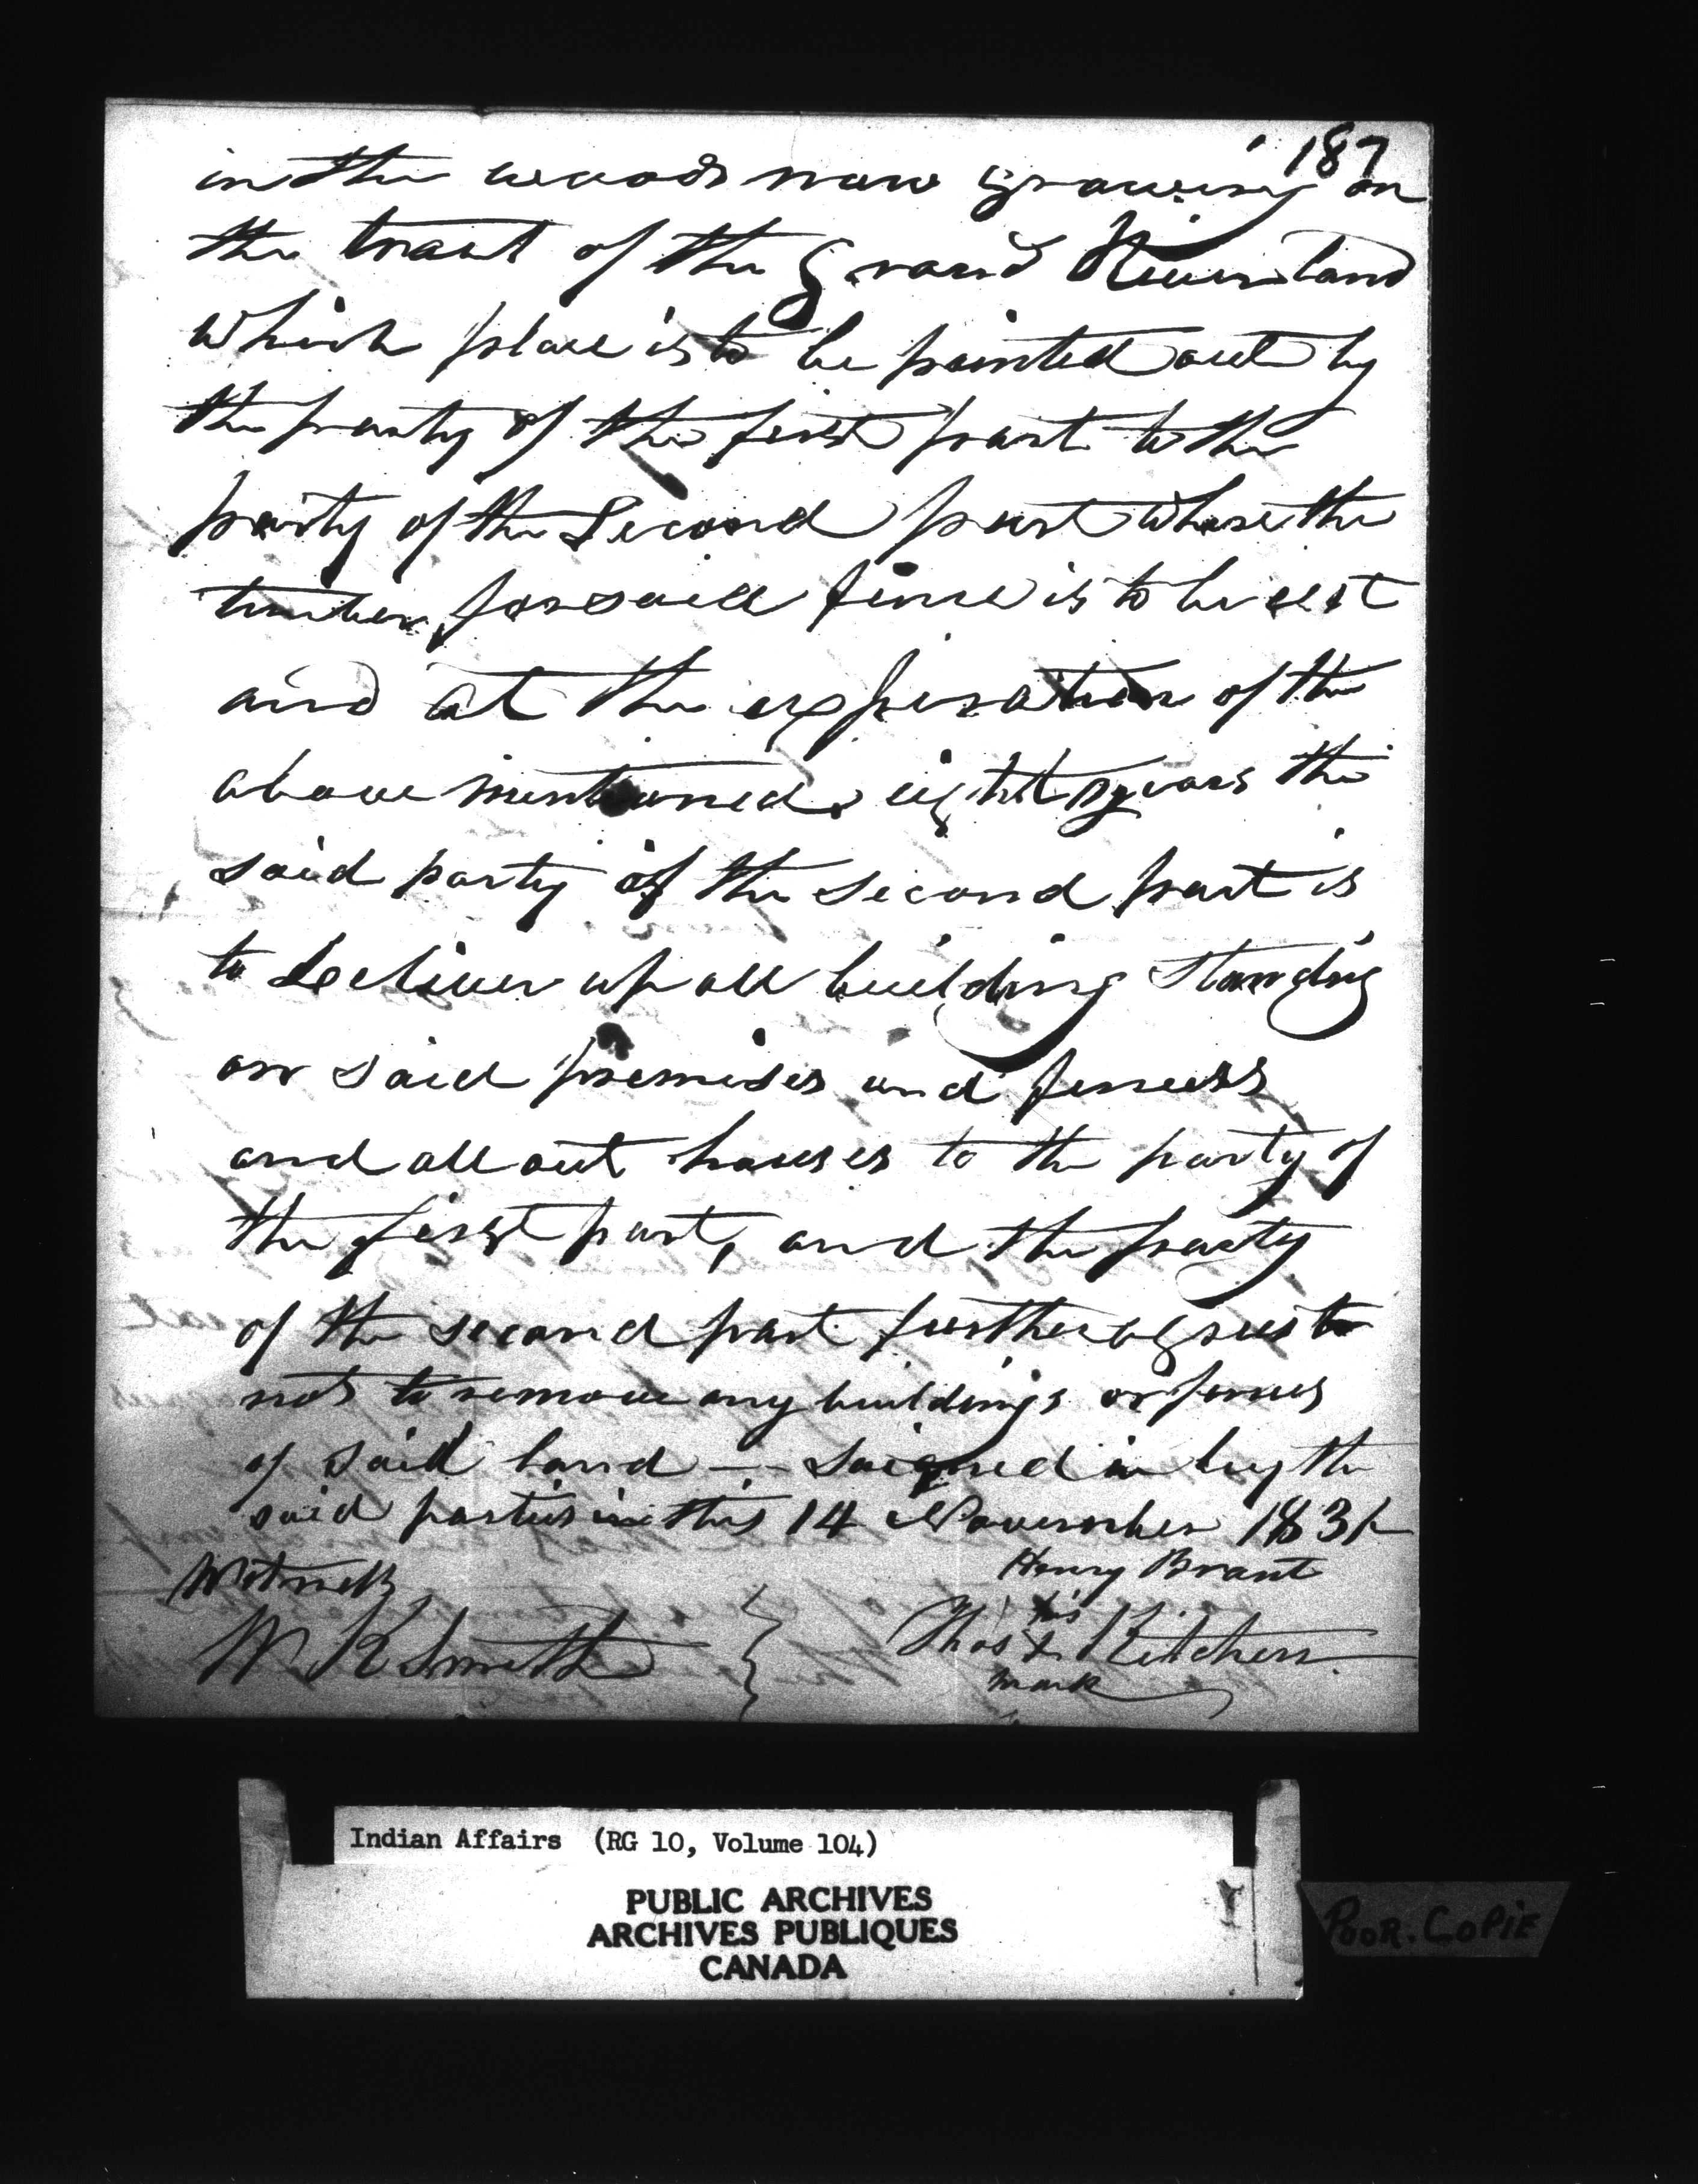 187
in the woods now growing on
the tract of the Grand River land
which place is to be pointed out by
the party of the first part to the
party of the Second part whare the
timber for said fince is to be cut
and at the expiration of the
above mentioned eight years the
said party of the second part is
to deeliver up all building standing
on said premises and fences
and all out houses to the party of
the first part, and the party
of the second part further agrees to
not to remove any buildings or fences
of said land — saigned in by the
said parties in this 14 November 183
Witness
Henry Brant
W K Smith
Thos his x mark Kitchen
Indian Affairs (RG 10, Volume 104)
PUBLIC ARCHIVES
ARCHIVES PUBLIQUES
CANADA
POOR. COPIE